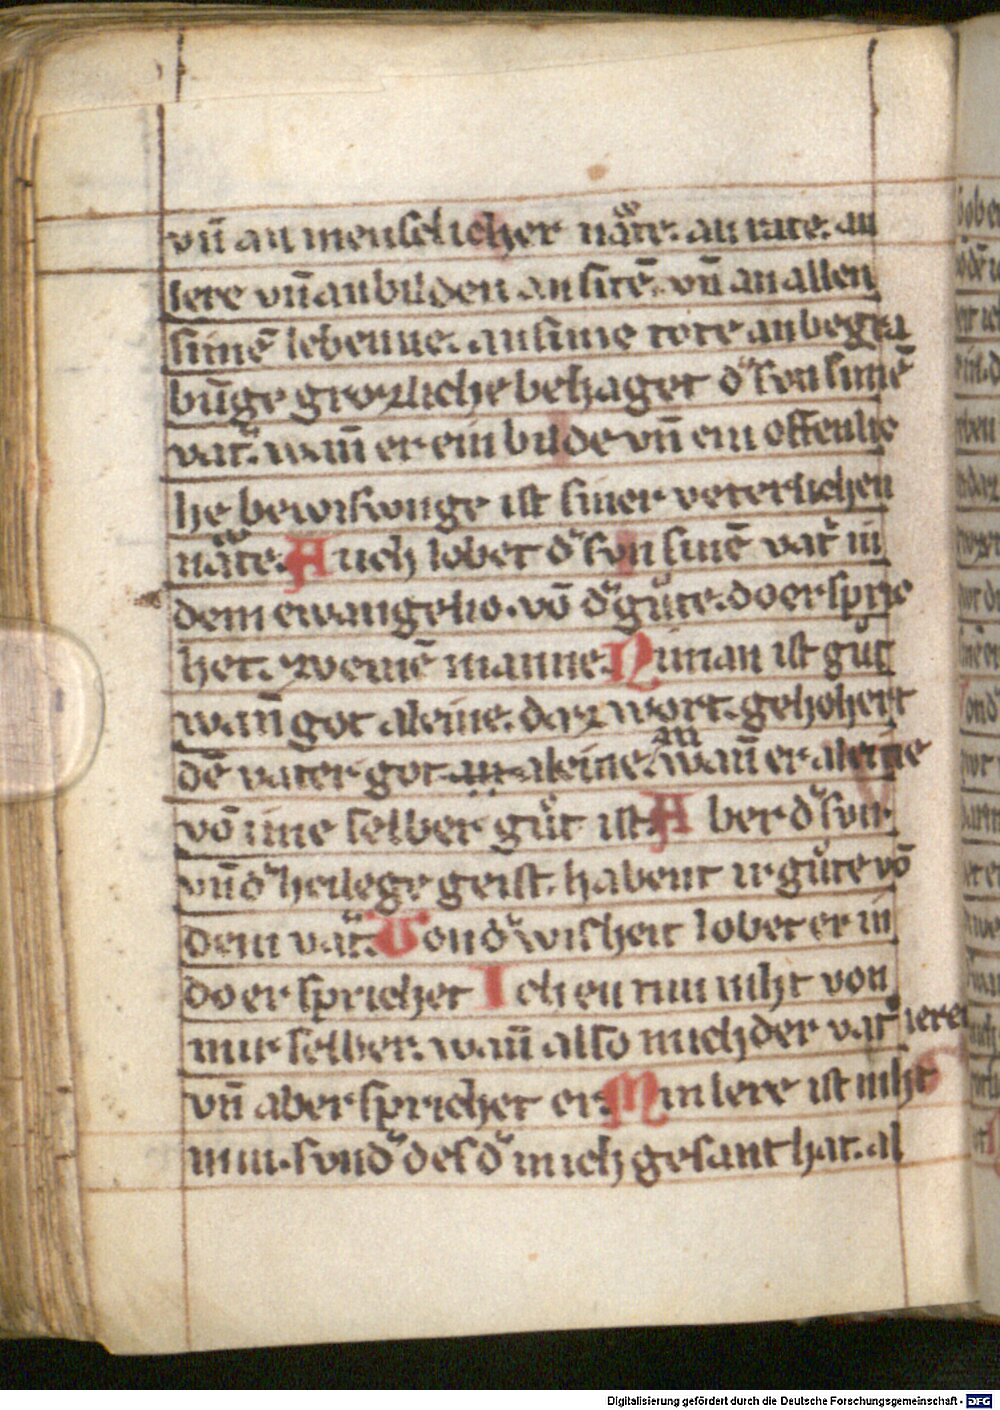 vn̄ an menschlicher natꝰe. an rate. an
lere vn̄ an bilden an sitē. vn̄ an allen
sinnē lebenne. an sime tote an begra
būge grozliche behaget dꝰ son sinē
vatꝰ. wan̄ er ein bilde vn̄ ein offenlic
he bewiswnge ist siner veterlichen
natꝰe. Auch lobet dꝰ son sinē vatꝰ in
dem ewangelio. vō dꝰ guͦte. do er spric
het. zv einē manne. Niman ist guͦt
wan̄ got aleine. daz wort. gehohert
dē vater got an aleine. wan̄ er aleine
vō ime selber guͦt ist. Aber dꝰ svn
vn̄ dꝰ heilege geist. habent ir guͦte vō
dem vatꝰ. Von dꝰ wisheit lobet er in
do er sprichet Ich en tuͦn niht von
mir selber. wan̄ also mich der vatꝰ leret
vn̄ aber sprichet er. Min lere ist niht
min. svndꝰ des dꝰ mich gesant hat. al
Digitalisierung gefördert durch die Deutsche Forschungsgemeinschaft - DFG